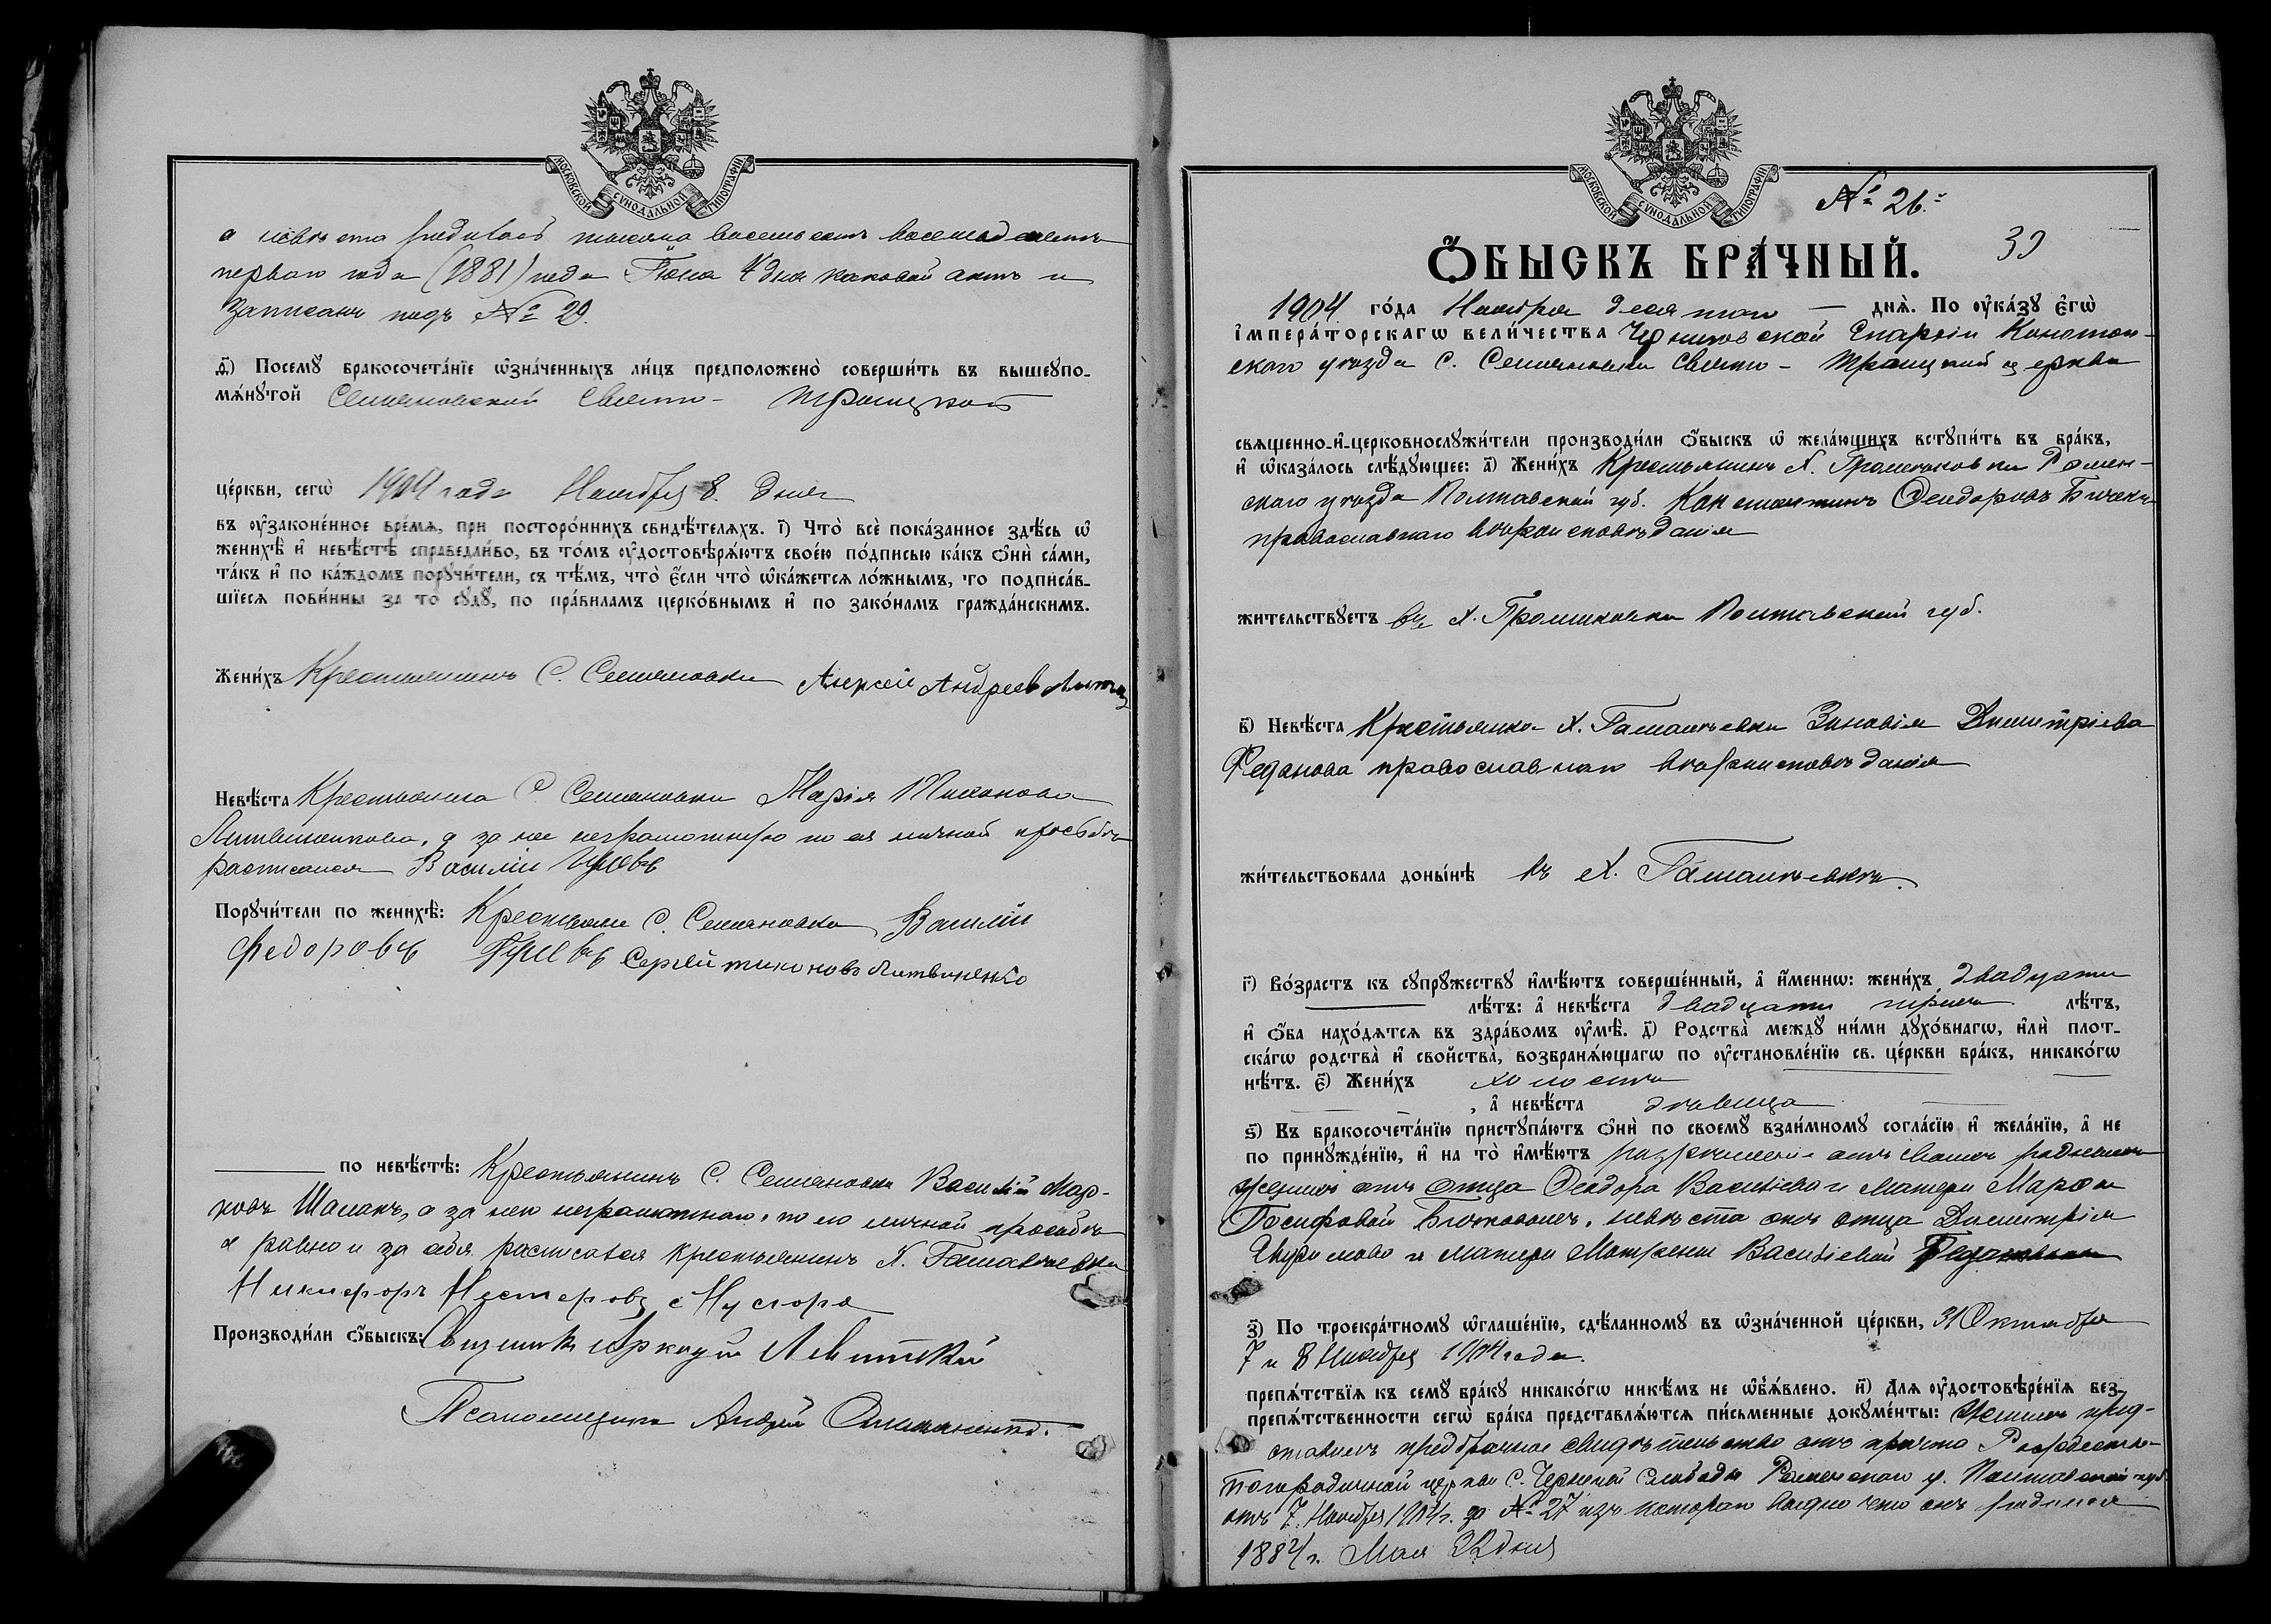 МОСКОВСКОЙ СѴНОДАЛЬНОЙ ТИПОГРАФІИ
а невѣста родилась тысяча восемьсотъ восемьдесятъ
перваго года (1881) года Іюня 4 дня каковой актъ и
записанъ подъ № 29.
ѳ҃) Посемꙋ бракосочета́нїе ѡ҆зна́ченныхъ ли́цъ предположено̀ соверши́ть въ вышеꙋпо-
мѧ́нꙋтой Семяновской Свято- Троицкой
це́ркви, сегѡ̀ 1904 года Ноября 8 дня
въ ᲂу҆законе́нное вре́мѧ, при посторо́ннихъ свидѣ́телѧхъ. і҃) Что̀ всѐ пока́занное здѣ́сь ѡ҆
женихѣ̀ и҆ невѣ́стѣ справедли́во, въ то́мъ ᲂу҆достовѣрѧ́ютъ свое́ю по́дписью ка́къ ѻ҆нѝ са́ми,
та́къ и҆ по ка́ждомъ порꙋчи́тели, съ тѣ́мъ, что̀ є҆́сли что̀ ѡ҆ка́жетсѧ ло́жнымъ, то подписа́в-
шїесѧ пови́нны за то сꙋдꙋ̀, по пра́виламъ церко́внымъ и҆ по зако́намъ гражда́нскимъ.
Жени́хъ Крестьянинъ С. Семяновки Алексѣй Андреевъ
Невѣ́ста Крестьянка С. Семяновки Марія Тихонова
Литвиненкова, а за нее неграмотную по ея личной просьбѣ
росписался Василій
Порꙋчи́тели по женихѣ̀: Крестьяне С. Семяновки Василій
Федоровъ Сергѣй тихоновъ Литвиненко
по невѣ́стѣ: Крестьянинъ С. Семяновки Василій Мар-
ковъ за него неграмотнаго, по его личной просьбѣ
а равно и за себя росписался крестьянинъ Х. Гамалѣевки
Никифоръ Нестеровъ
Производи́ли ѻ҆́быскъ: Священникъ Аркадій Левитскій
Псаломщикъ Андрей
МОСКОВСКОЙ СѴНОДАЛЬНОЙ ТИПОГРАФІИ
№ 26.
39
Ѻ҆́БЫСКЪ БРА́ЧНЫЙ.
1904 го́да Ноября десятаго днѧ̀. По ᲂу҆ка́зꙋ є҆гѡ̀
і҆мпера́торскагѡ вели́чества Черниговской Епархіи Конотоп-
скаго уѣзда С. Семяновки Свято- Троицкой церкви
свѧщенно-и҆-церковнослꙋжи́тели производи́ли ѻ҆́быскъ ѡ҆ жела́ющихъ встꙋпи́ть въ бра́къ,
и҆ ѡ҆каза́лось слѣ́дꙋющее: а҃) Жени́хъ Крестьянинъ Х. Ромен-
скаго уѣзда Полтавской губ. Константинъ Ѳеодоровъ
православнаго вѣроисповѣданія
жительствꙋетъ въ Х. Полтавской губ.
в҃) Невѣ́ста Крестьянка Х. Гамалѣевки Зиновія Димитріева
православнаго вѣроисповѣданія
жи́тельствовала доны́нѣ въ Х. Гамалѣевкѣ.
г҃) Во́зрастъ къ сꙋпрꙋ́жествꙋ и҆мѣ́ютъ соверше́нный, а҆ и҆́меннѡ: жени́хъ двадцати
лѣ́тъ: а҆ невѣ́ста двадцати трехъ лѣ́тъ,
и҆ ѻ҆́ба нахо́дѧтсѧ въ здра́вомъ ᲂу҆мѣ̀. д҃) Родства̀ междꙋ̀ ни́ми дꙋхо́внагѡ, и҆лѝ плот-
ска́гѡ родства̀ и҆ свойства̀, возбранѧ́ющагѡ по ᲂу҆становле́нїю св. це́ркви бра́къ, никако́гѡ
нѣ́тъ. є҃) Жени́хъ холостъ
, а҆ невѣ́ста дѣвица
ѕ҃) Къ бракосочета́нїю пристꙋпа́ютъ ѻ҆нѝ по своемꙋ̀ взаи́мномꙋ согла́сїю и҆ жела́нїю, а҆ не
по принꙋжде́нїю, и҆ на то̀ и҆мѣ́ютъ разрѣшеніе отъ своихъ родителей
женихъ отъ отца Ѳеодора Василіева и матери Марѳы
Іосифовой невѣста отъ отца Димитрія
и матери Матрены Василіевой
з҃) По троекра́тномꙋ ѡ҆глаше́нїю, сдѣ́ланномꙋ въ ѡ҆зна́ченной це́ркви, 31 Октября
7 и 8 Ноября 1904 года.
препѧ́тствїѧ къ семꙋ̀ бра́кꙋ никако́гѡ никѣ́мъ не ѡ҆б̾ѧ́влено. и҃) Длѧ ᲂу҆достовѣре́нїѧ без-
препѧ́тственности сегѡ̀ бра́ка представлѧ́ютсѧ пи́сьменные докꙋме́нты: Женихъ пред-
ставилъ предбрачное свидѣтельство отъ причта Рождество-
Богородичной церкви С. Черневой Слободы Роменскаго у. Полтавской губ
отъ 7 Ноября 1904 г. за № 27 изъ котораго видно что онъ родился
1884 г. Мая 22 дня